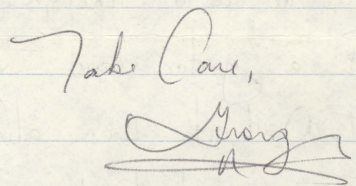 Take Care,
George